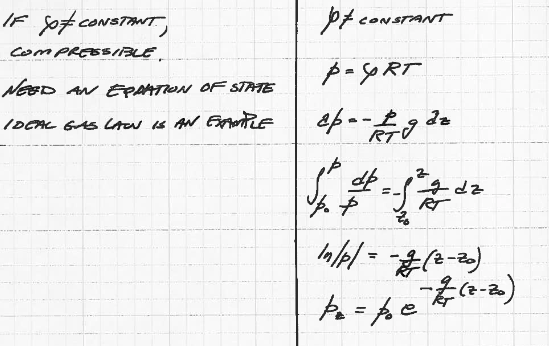 IF ρ ≠ CONSTANT,
COMPRESSIBLE.
NEED AN EQUATION OF STATE
IDEAL GAS LAW IS AN EXAMPLE
ρ ≠ CONSTANT
p = ρRT
dp = -p/RT g dz
∫_{p₀}^{p} dp/p = -∫_{z₀}^{z} g/RT dz
ln|p| = -g/RT (z-z₀)
p_z = p₀ e^{-g/RT (z-z₀)}